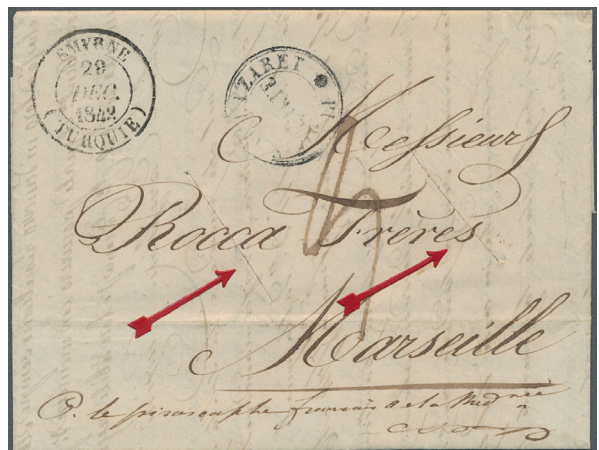 SMYRNE
29
DEC.
1842
(TURQUIE)
Messieurs
Rocca Frères
Marseille
P. le piroscaphe français de la Med née